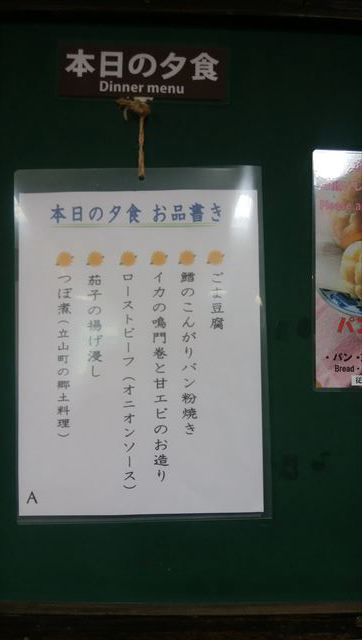 本日の夕食
Dinner menu
本日の夕食 お品書き
ごま豆腐
鱈のこんがりパン粉焼き
イカの鳴門巻と甘エビのお造り
ローストビーフ（オニオンソース）
茄子の揚げ浸し
つぼ煮（立山町の郷土料理）
A
Please a
パ
・パン・
Bread・